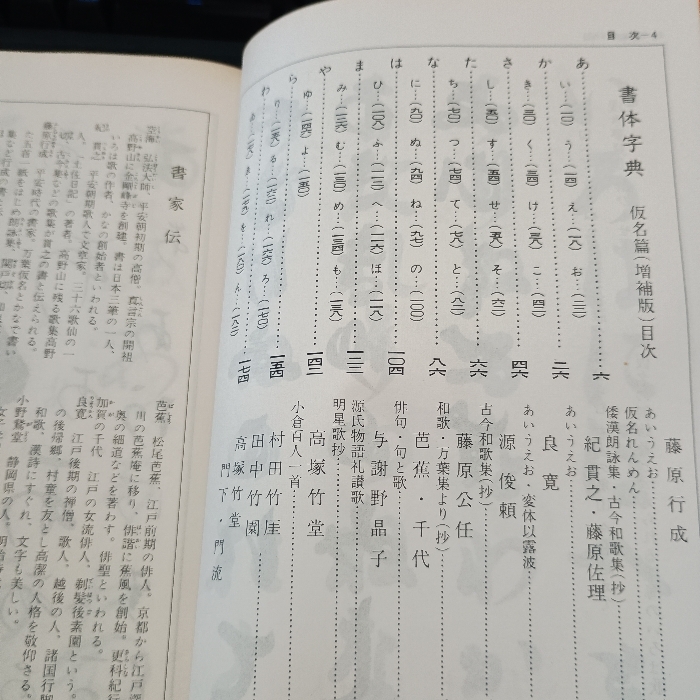 目次—4
書体字典 仮名篇(増補版)目次
あ…………六
い…(一〇) う…(一四) え…(一八) お…(二二)
か…………二六
き…(三〇) く…(三四) け…(三八) こ…(四二)
さ…………四六
し…(五〇) す…(五四) せ…(五八) そ…(六二)
た…………六六
ち…(七〇) つ…(七四) て…(七八) と…(八二)
な…………八六
に…(九〇) ぬ…(九四) ね…(九七) の…(一〇〇)
は…………一〇四
ひ…(一〇八) ふ…(一一二) へ…(一一六) ほ…(一二〇)
ま…………一二三
み…(一二六) む…(一三〇) め…(一三四) も…(一三八)
や…………一四二
ゆ…(一四六) よ…(一五〇)
ら…………一五四
り…(一五八) る…(一六二) れ…(一六六) ろ…(一七〇)
わ…………一七四
を…(一八〇) ん…(一八二)
藤原行成
あいうえお…………
仮名れんめん…………
倭漢朗詠集・古今和歌集(抄)
紀貫之・藤原佐理
あいうえお…………
良寛
あいうえお・変体以露波
源俊頼
古今和歌集(抄)…………
藤原公任
和歌・万葉集より(抄)
芭蕉・千代
俳句・句と歌…………
与謝野晶子
源氏物語礼讃歌…………
明星歌抄…………
高塚竹堂
小倉百人一首…………
村田竹崖
田中竹園
高塚竹堂
門下・門流
書家伝
空海 弘法大師。平安朝初期の高僧。真言宗の開祖
高野山に金剛峰寺を創建。書は日本三筆の一人、
いろは歌の作者、かなの創始者といわれる。
紀貫之 平安朝期歌人で文章家。三十六歌仙の一
人。「土佐日記」の著者。高野山に残る歌集高野
切（古今集など）の歌集が貫之の書と伝えられる。
藤原行成 平安時代の書家。万葉仮名とかなで書い
芭蕉 松尾芭蕉、江戸前期の俳人。京都から江戸深
川の芭蕉庵に移り、俳諧に蕉風を創始。更科紀行
奥の細道などを著わす。俳聖といわれる。
加賀の千代 江戸の女流俳人。剃髪後素園という。
良寛 江戸後期の禅僧。歌人、越後の人。諸国行脚
の後帰郷、村童を友とし高潔の人格を敬仰さる。
和歌、漢詩にすぐれ、文字も美しい。
小野鵞堂 静岡県の人。明治